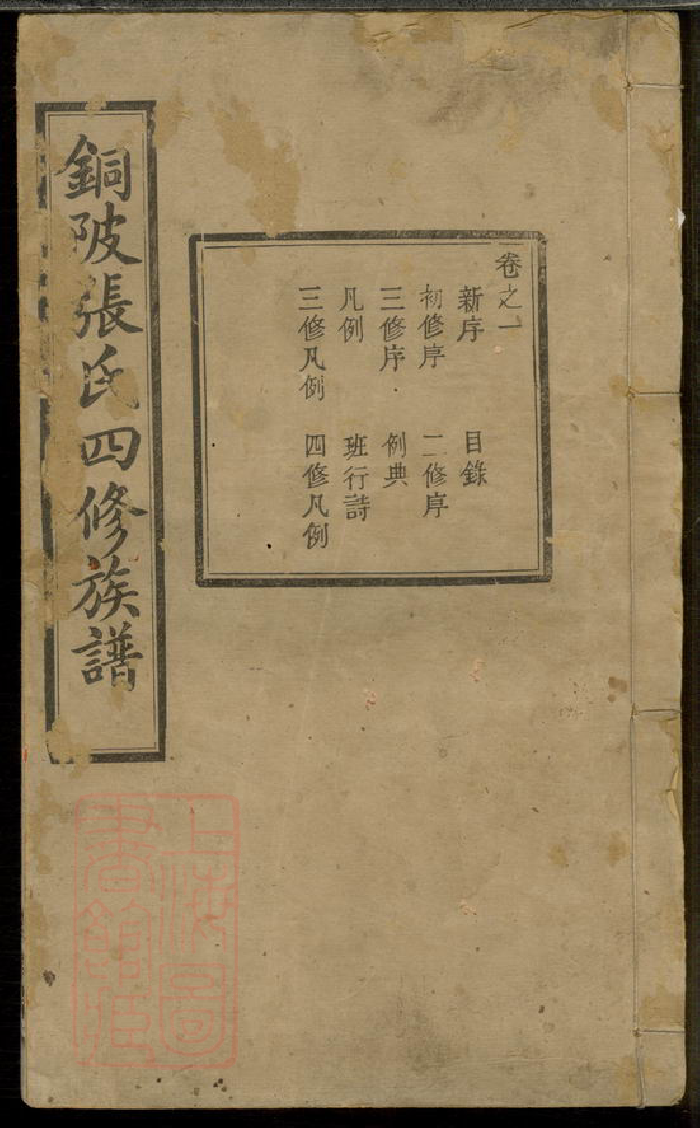 銅陂張氏四修族譜
卷之一
新序 目錄
初修序 二修序
三修序 例典
凡例 班行詩
三修凡例 四修凡例
上海圖
書館藏